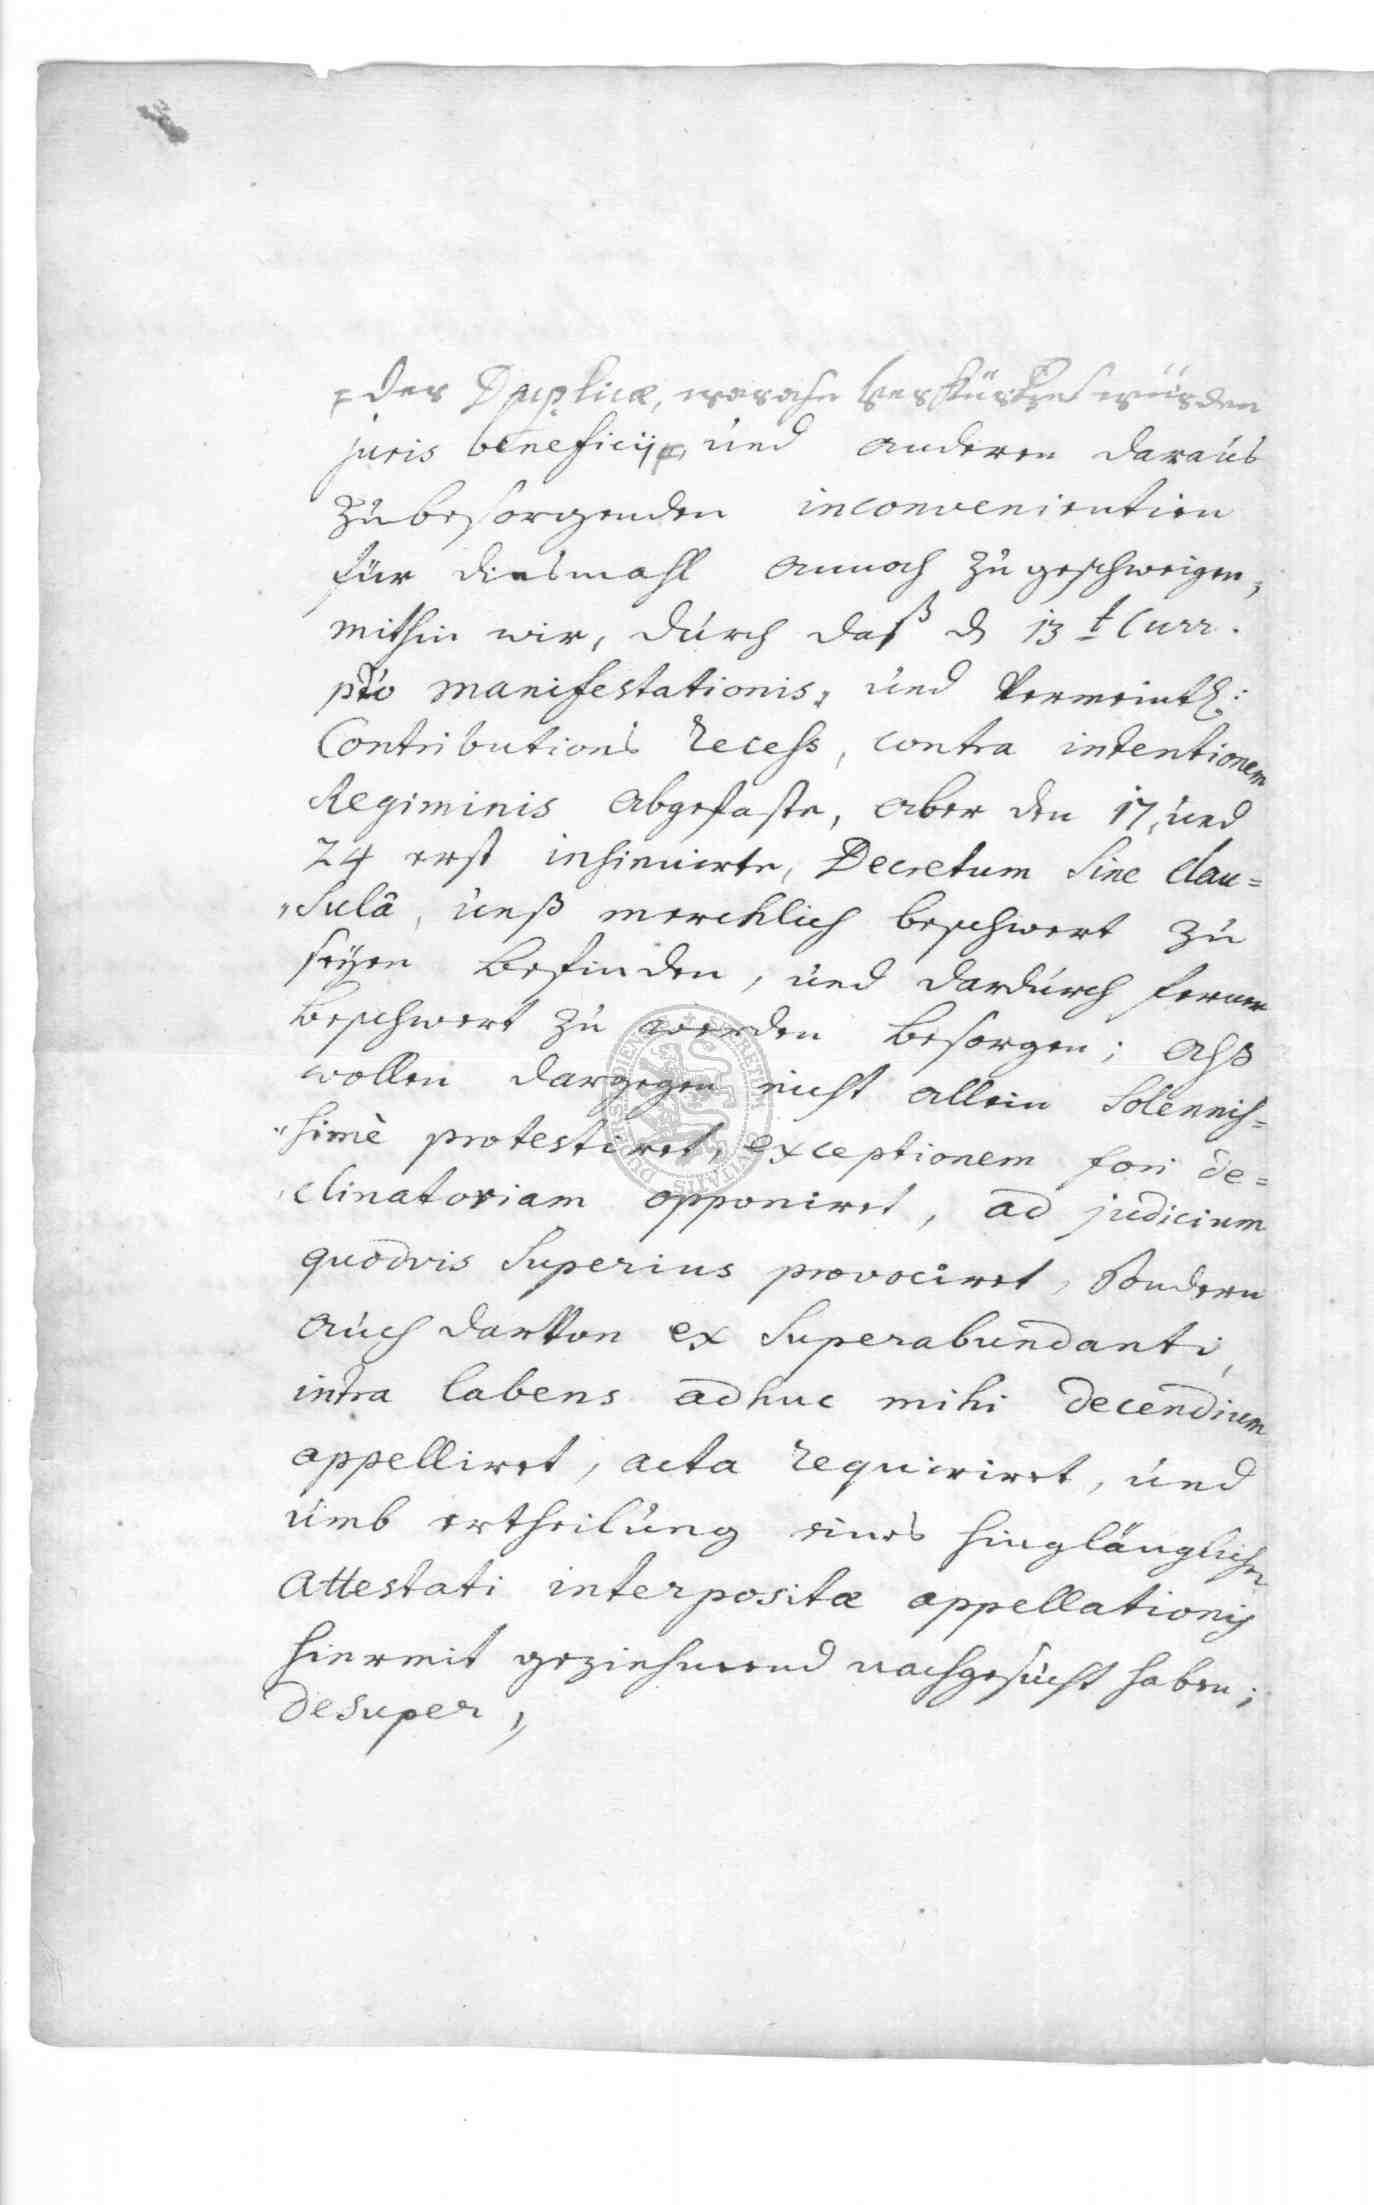 der Duplicæ, verkürtzet würden
juris beneficij, und anderen daraus
zu besorgenden inconvenientien
für diesmahl annoch zu geschweigen,
mithin wir, durch daß d 13t Curr.
pto manifestationis, und Vermeintl:
Contributions Recess, contra intentionem
Regiminis abgefaste, aber den 17, und
24 erst insinuirte, Decretum sine clau=
"sulâ, unß mercklich beschwert zu
seyen befinden, und dardurch ferner
beschwert zu werden besorgen; alß
wollen dargegen nicht allein solennis=
"simè protestiret, exceptionem fori de=
clinatoriam opponiret, ad judicium
quodvis superius provociret, sondern
auch darvon ex superabundanti,
intra labens adhuc mihi decendium
appelliret, acta requiriret, und
umb ertheilung eines hinglänglichen
attestati interpositæ appellationis
hiermit geziehmend nachgesucht haben;
desuper,